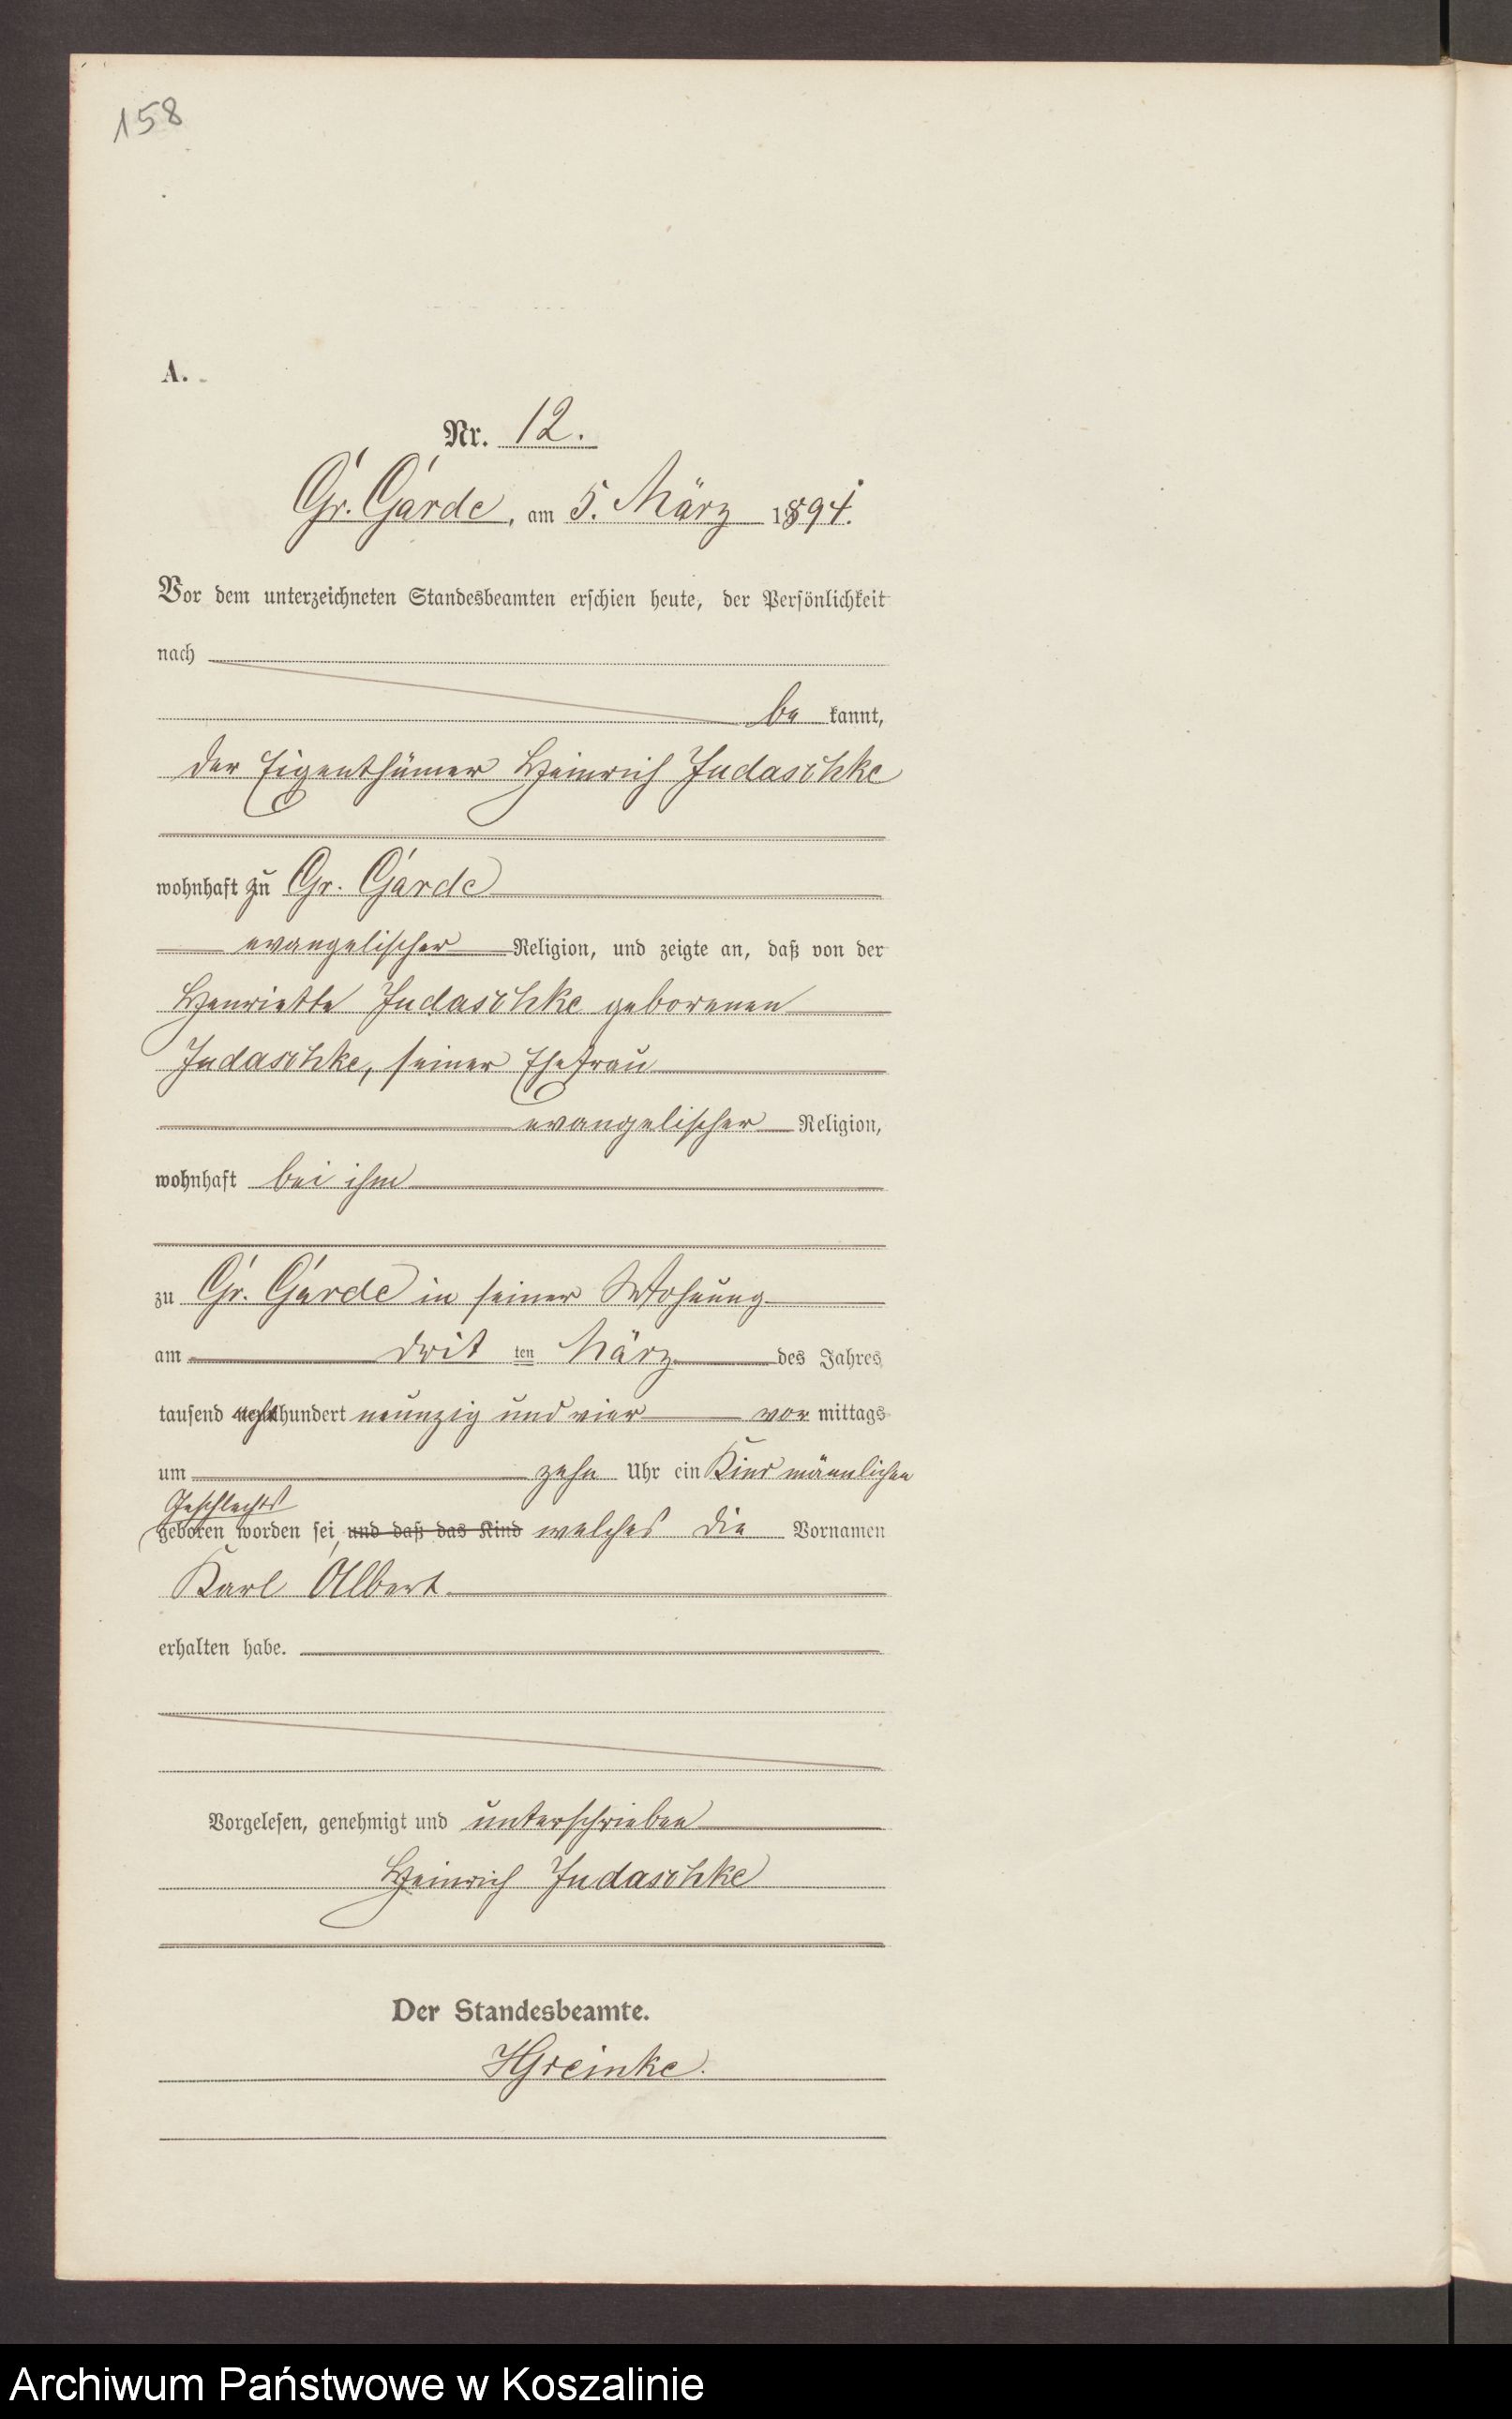 158
A.
Nr. 12.
Gr. Garde, am 5. März 1894.
Vor dem unterzeichneten Standesbeamten erschien heute, der Persönlichkeit
nach
be kannt,
der Eigenthümer Heinrich Judaschke
wohnhaft zu Gr. Garde
evangelischer Religion, und zeigte an, daß von der
Henriette Judaschke geborenen
Judaschke, seiner Ehefrau
evangelischer Religion,
wohnhaft bei ihm
zu Gr. Garde in seiner Wohnung
am drit ten März des Jahres
tausend achthundert neunzig und vier vor mittags
um zehn Uhr ein Kind männlichen
Geschlechts
geboren worden sei, und daß das Kind welches die Vornamen
Karl Albert
erhalten habe.
Vorgelesen, genehmigt und unterschrieben
Heinrich Judaschke
Der Standesbeamte.
HGreinke.
Archiwum Państwowe w Koszalinie